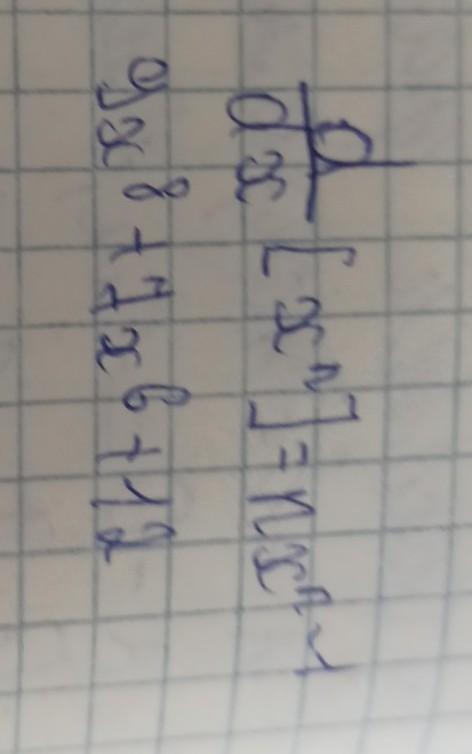 d/dx [xⁿ] = nxⁿ⁻¹
9x⁸ + 7x⁶ + 12